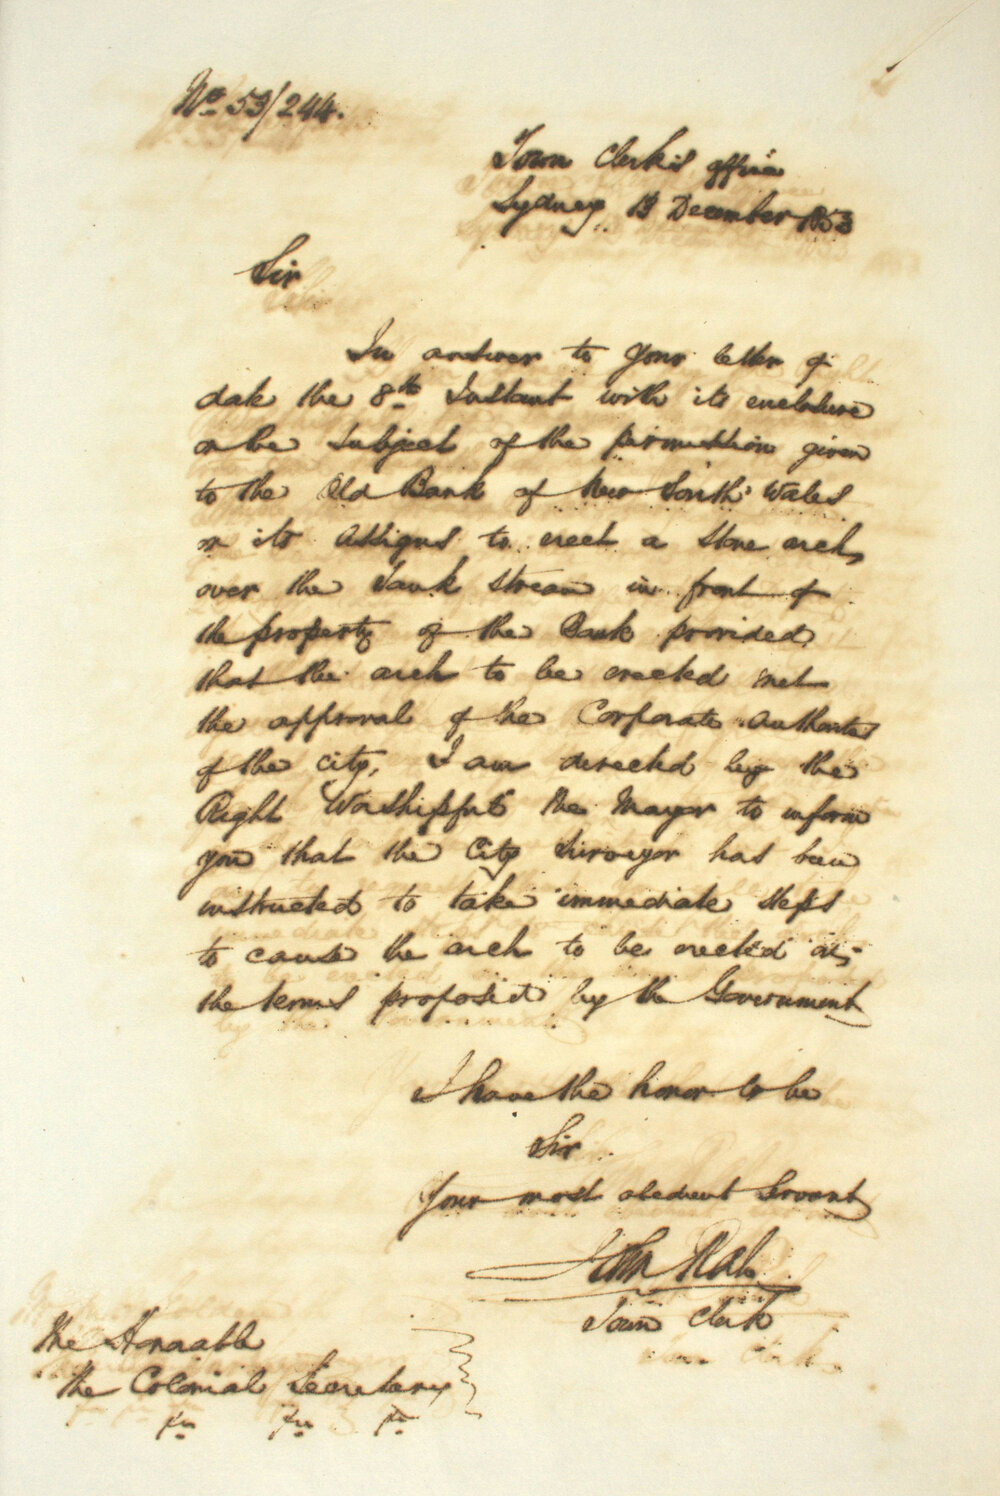 No 53/244.
Town Clerk's office
Sydney 13 December 1853
Sir
In answer to your letter of
date the 8th Instant with its enclosure
on the subject of the permission given
to the Old Bank of New South Wales
or its Assigns to erect a stone arch
over the Tank Stream in front of
the property of the Bank provided
that the arch to be erected met
the approval of the Corporate Authorities
of the city, I am directed by the
Right Worshipful the Mayor to inform
you that the City Surveyor has been
instructed to take immediate steps
to cause the arch to be erected on
the terms proposed by the Government
I have the honor to be
Sir
Your most obedient Servant
John Rae
Town Clerk
The Honorable
the Colonial Secretary